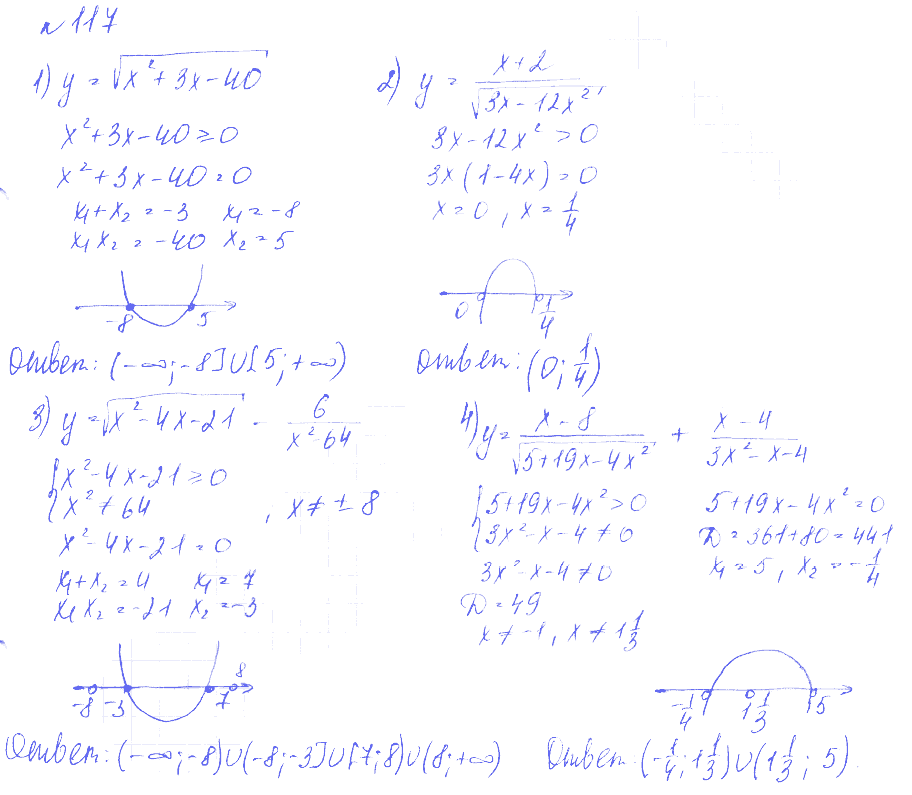 №117
1) y = √(x² + 3x - 40)
x² + 3x - 40 ≥ 0
x² + 3x - 40 = 0
x₁ + x₂ = -3   x₁ = -8
x₁ x₂ = -40   x₂ = 5
-8   5
Ответ: (-∞; -8] ∪ [5; +∞)
2) y = (x+2)/√(3x - 12x²)
3x - 12x² > 0
3x(1 - 4x) = 0
x = 0, x = 1/4
0   1/4
Ответ: (0; 1/4)
3) y = √(x² - 4x - 21) - 6/(x² - 64)
{ x² - 4x - 21 ≥ 0
{ x² ≠ 64   , x ≠ ± 8
x² - 4x - 21 = 0
x₁ + x₂ = 4   x₁ = 7
x₁ x₂ = -21   x₂ = -3
-8   -3   7   8
Ответ: (-∞; -8) ∪ (-8; -3] ∪ [7; 8) ∪ (8; +∞)
4) y = (x - 8)/√(5 + 19x - 4x²) + (x - 4)/(3x² - x - 4)
{ 5 + 19x - 4x² > 0   5 + 19x - 4x² = 0
{ 3x² - x - 4 ≠ 0   D = 361 + 80 = 441
3x² - x - 4 ≠ 0   x₁ = 5, x₂ = -1/4
D = 49
x ≠ -1, x ≠ 1 1/3
-1/4   1 1/3   5
Ответ: (-1/4; 1 1/3) ∪ (1 1/3; 5).